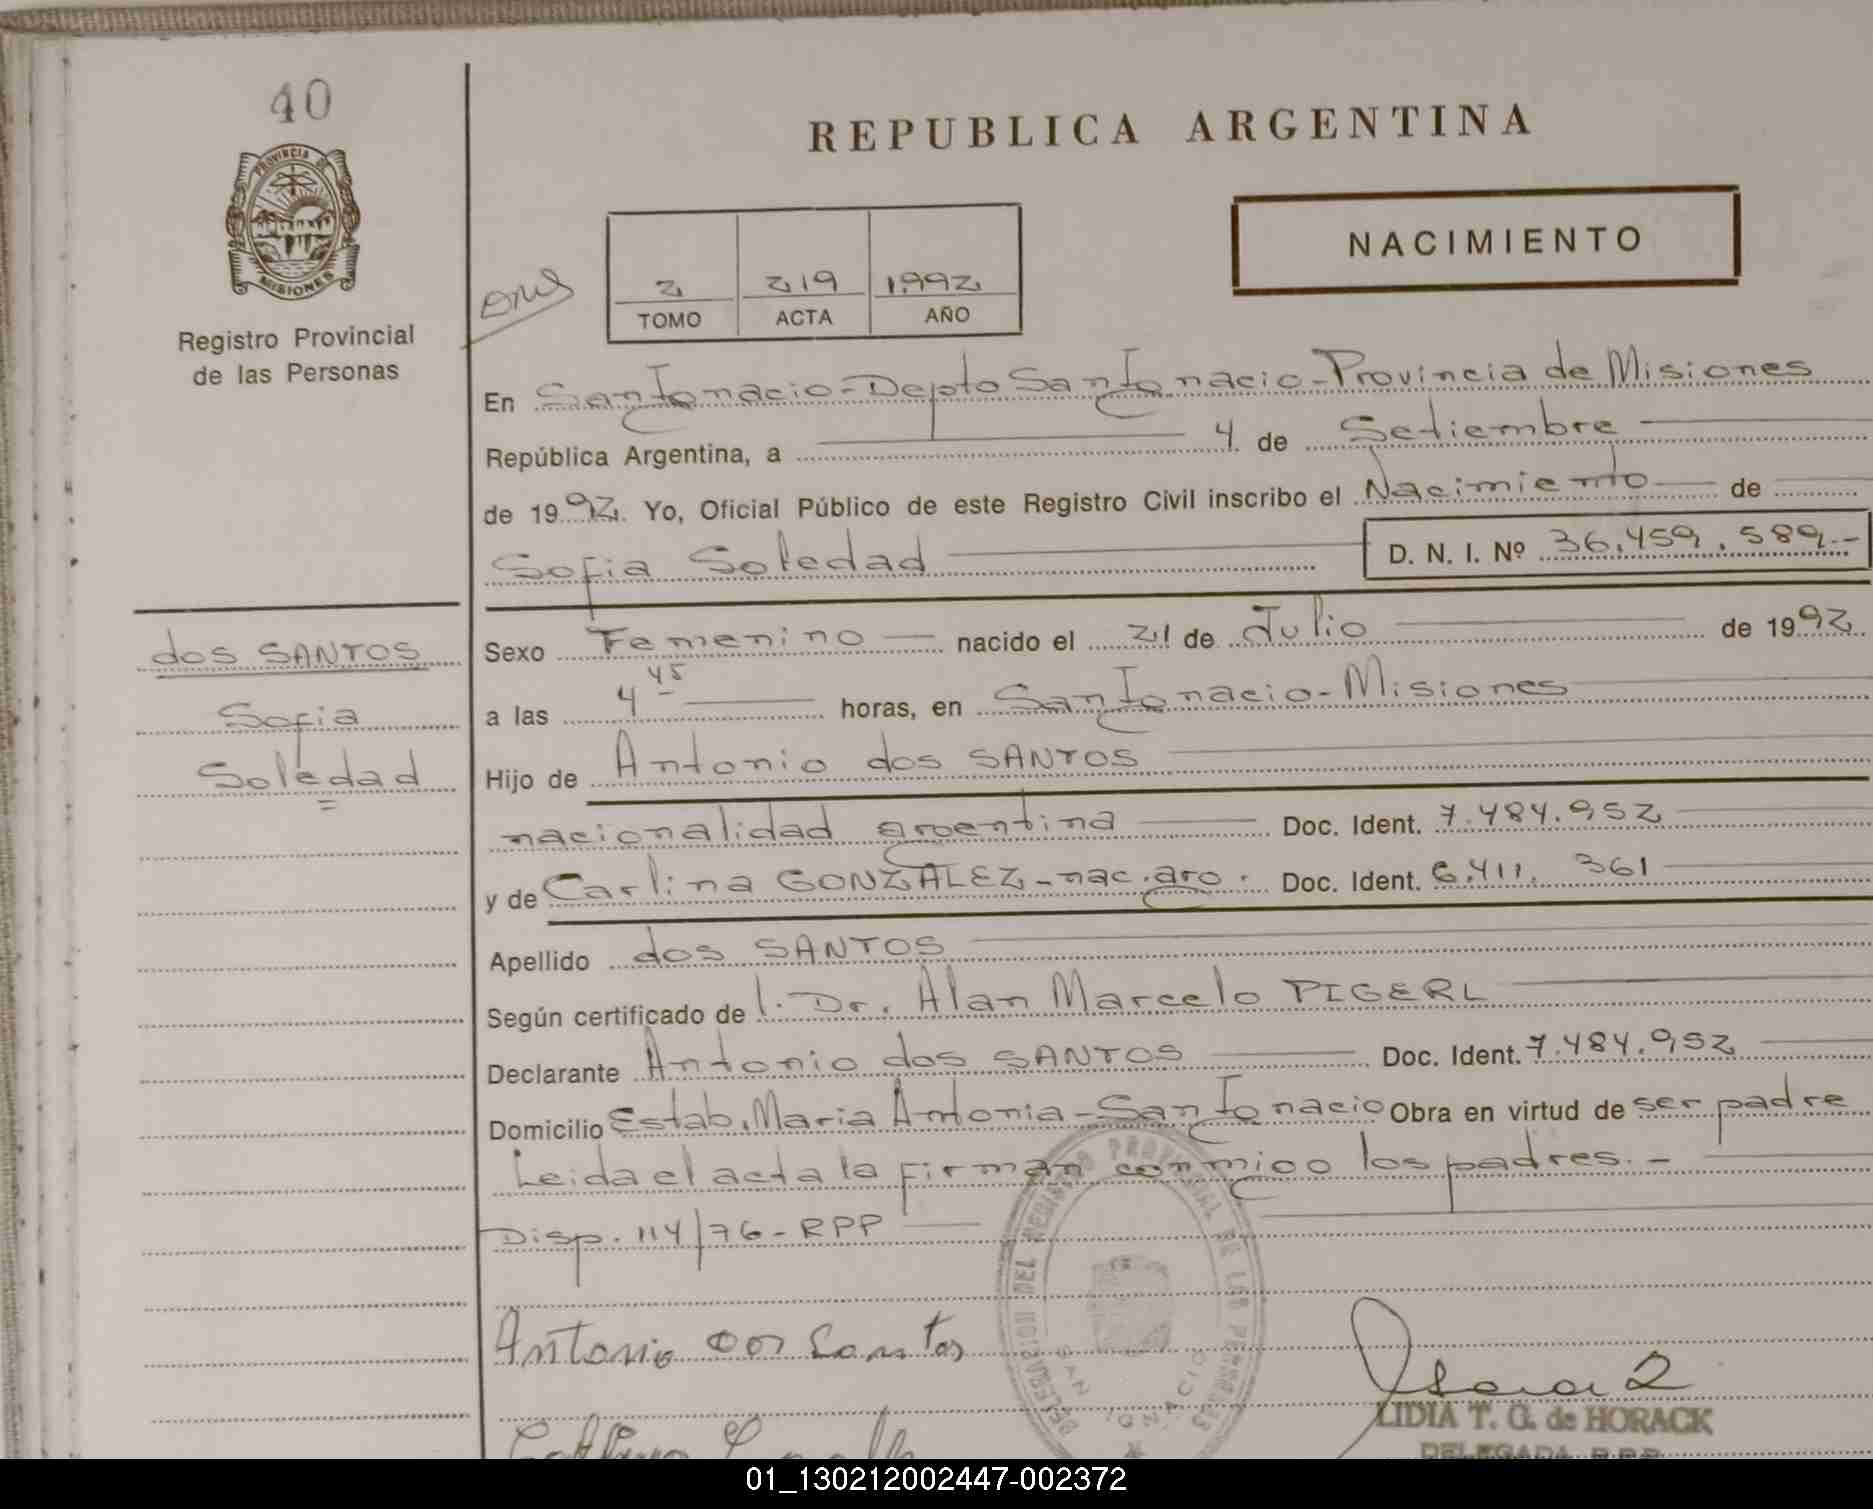 40
PROVINCIA DE
MISIONES
Registro Provincial
de las Personas
REPUBLICA ARGENTINA
NACIMIENTO
2 219 1992
TOMO ACTA AÑO
En San Ignacio - Depto San Ignacio - Provincia de Misiones
República Argentina, a 4 de Setiembre
de 1992. Yo, Oficial Público de este Registro Civil inscribo el Nacimiento de
Sofia Soledad D. N. I. Nº 36.459.589.-
dos SANTOS
Sofia
Soledad
Sexo Femenino nacido el 21 de Julio de 1992
a las 4 45 horas, en San Ignacio - Misiones
Hijo de Antonio dos SANTOS
nacionalidad argentina Doc. Ident. 7.484.952
y de Carlina GONZALEZ - nac. arg. Doc. Ident. 6.411.361
Apellido dos SANTOS
Según certificado del Dr. Alan Marcelo PIGERL
Declarante Antonio dos SANTOS Doc. Ident. 7.484.952
Domicilio Estab. Maria Antonia - San Ignacio Obra en virtud de ser padre
Leida el acta la firman conmigo los padres.-
Disp. 114/76 - RPP
DELEGACION DEL REGISTRO PROVINCIAL DE LAS PERSONAS
SAN IGNACIO
Antonio dos Santos
LIDIA T. G. de HORACK
DELEGADA R.P.P.
01_130212002447-002372